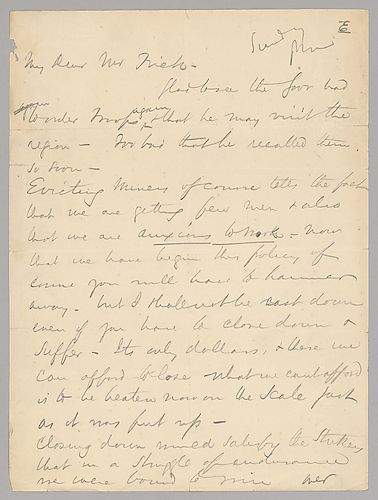 E
Sunday
My Dear Mr Frick-
Glad to see the Gov had
to order Troops again & that he may visit the
region - Too bad that he recalled them
so soon -
Evicting miners of course tells the fact
that we are getting few men & also
that we are anxious to work - Now
that we have begun this policy of
course you will have to hammer
away. but I shall not be cast down
even if you have to close down &
suffer - Its only dollars, & these we
can afford to lose what we cant afford
is to be beaten now on the Scale just
as it was put up -
Closing down would satisfy the Strikers
that in a struggle of endurance
we were bound to win over